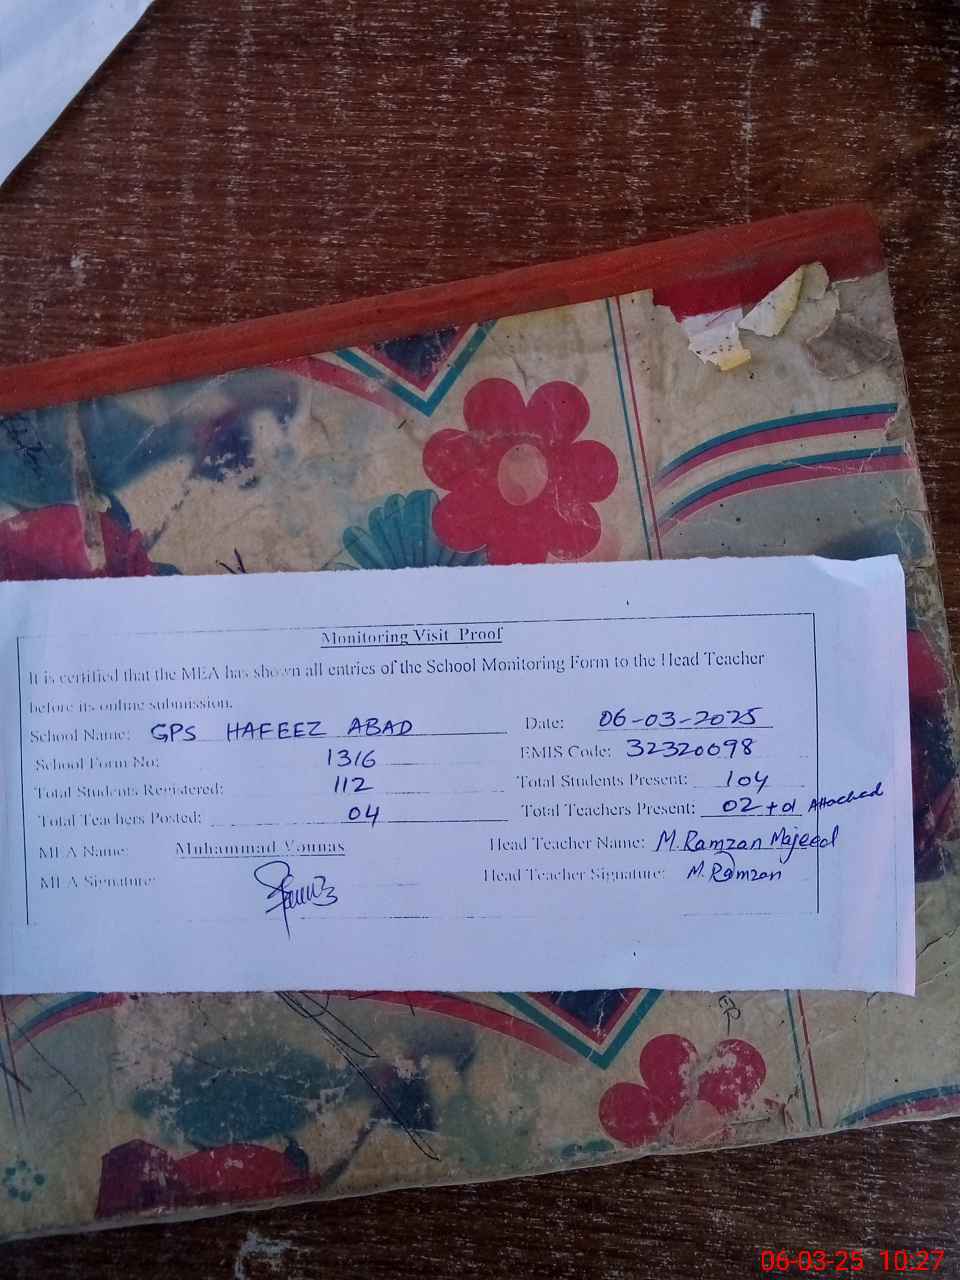 Monitoring Visit Proof
It is certified that the MEA has shown all entries of the School Monitoring Form to the Head Teacher
before its online submission.
School Name: GPS HAFEEZ ABAD Date: 06-03-2025
School Form No: 1316 EMIS Code: 32320098
Total Students Registered: 112 Total Students Present: 104
Total Teachers Posted: 04 Total Teachers Present: 02 + 01 Attached
MEA Name: Muhammad Younas Head Teacher Name: M. Ramzan Majeed
MEA Signature: Head Teacher Signature: M. Ramzan
06-03-25 10:27